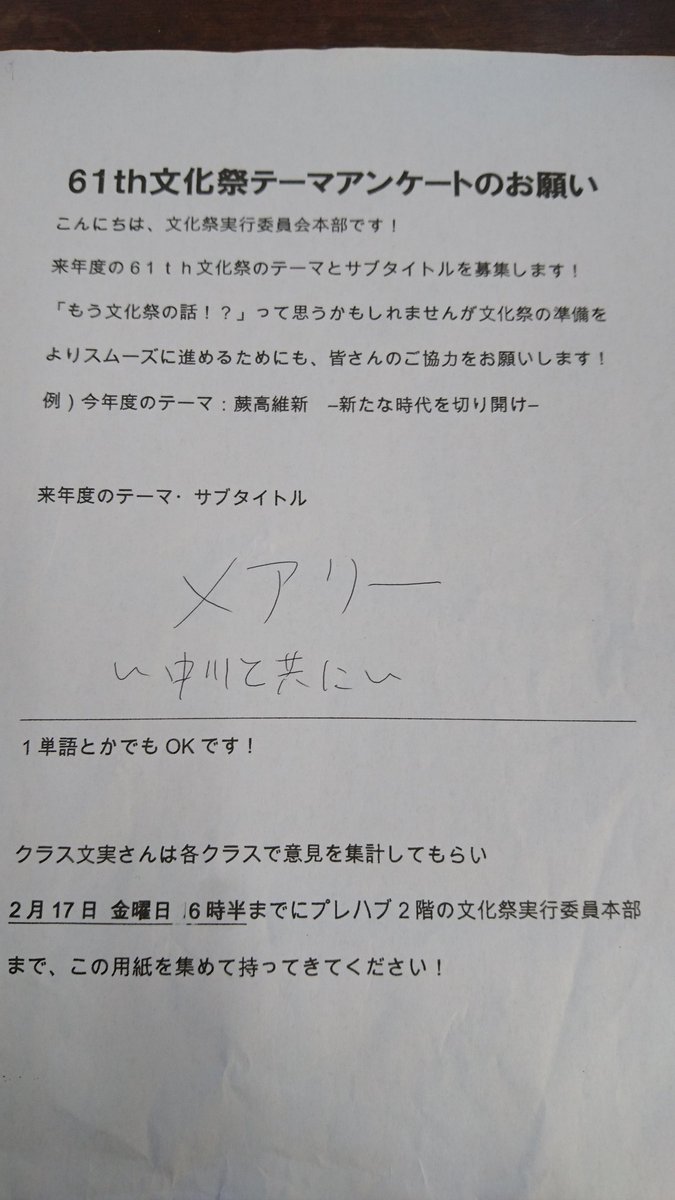 61th文化祭テーマアンケートのお願い
こんにちは、文化祭実行委員会本部です！
来年度の６１ｔｈ文化祭のテーマとサブタイトルを募集します！
「もう文化祭の話！？」って思うかもしれませんが文化祭の準備を
よりスムーズに進めるためにも、皆さんのご協力をお願いします！
例）今年度のテーマ：蕨高維新　–新たな時代を切り開け–
来年度のテーマ・サブタイトル
メアリー
〜中川と共に〜
１単語とかでも OK です！
クラス文実さんは各クラスで意見を集計してもらい
2月17日 金曜日 16時半までにプレハブ２階の文化祭実行委員本部
まで、この用紙を集めて持ってきてください！